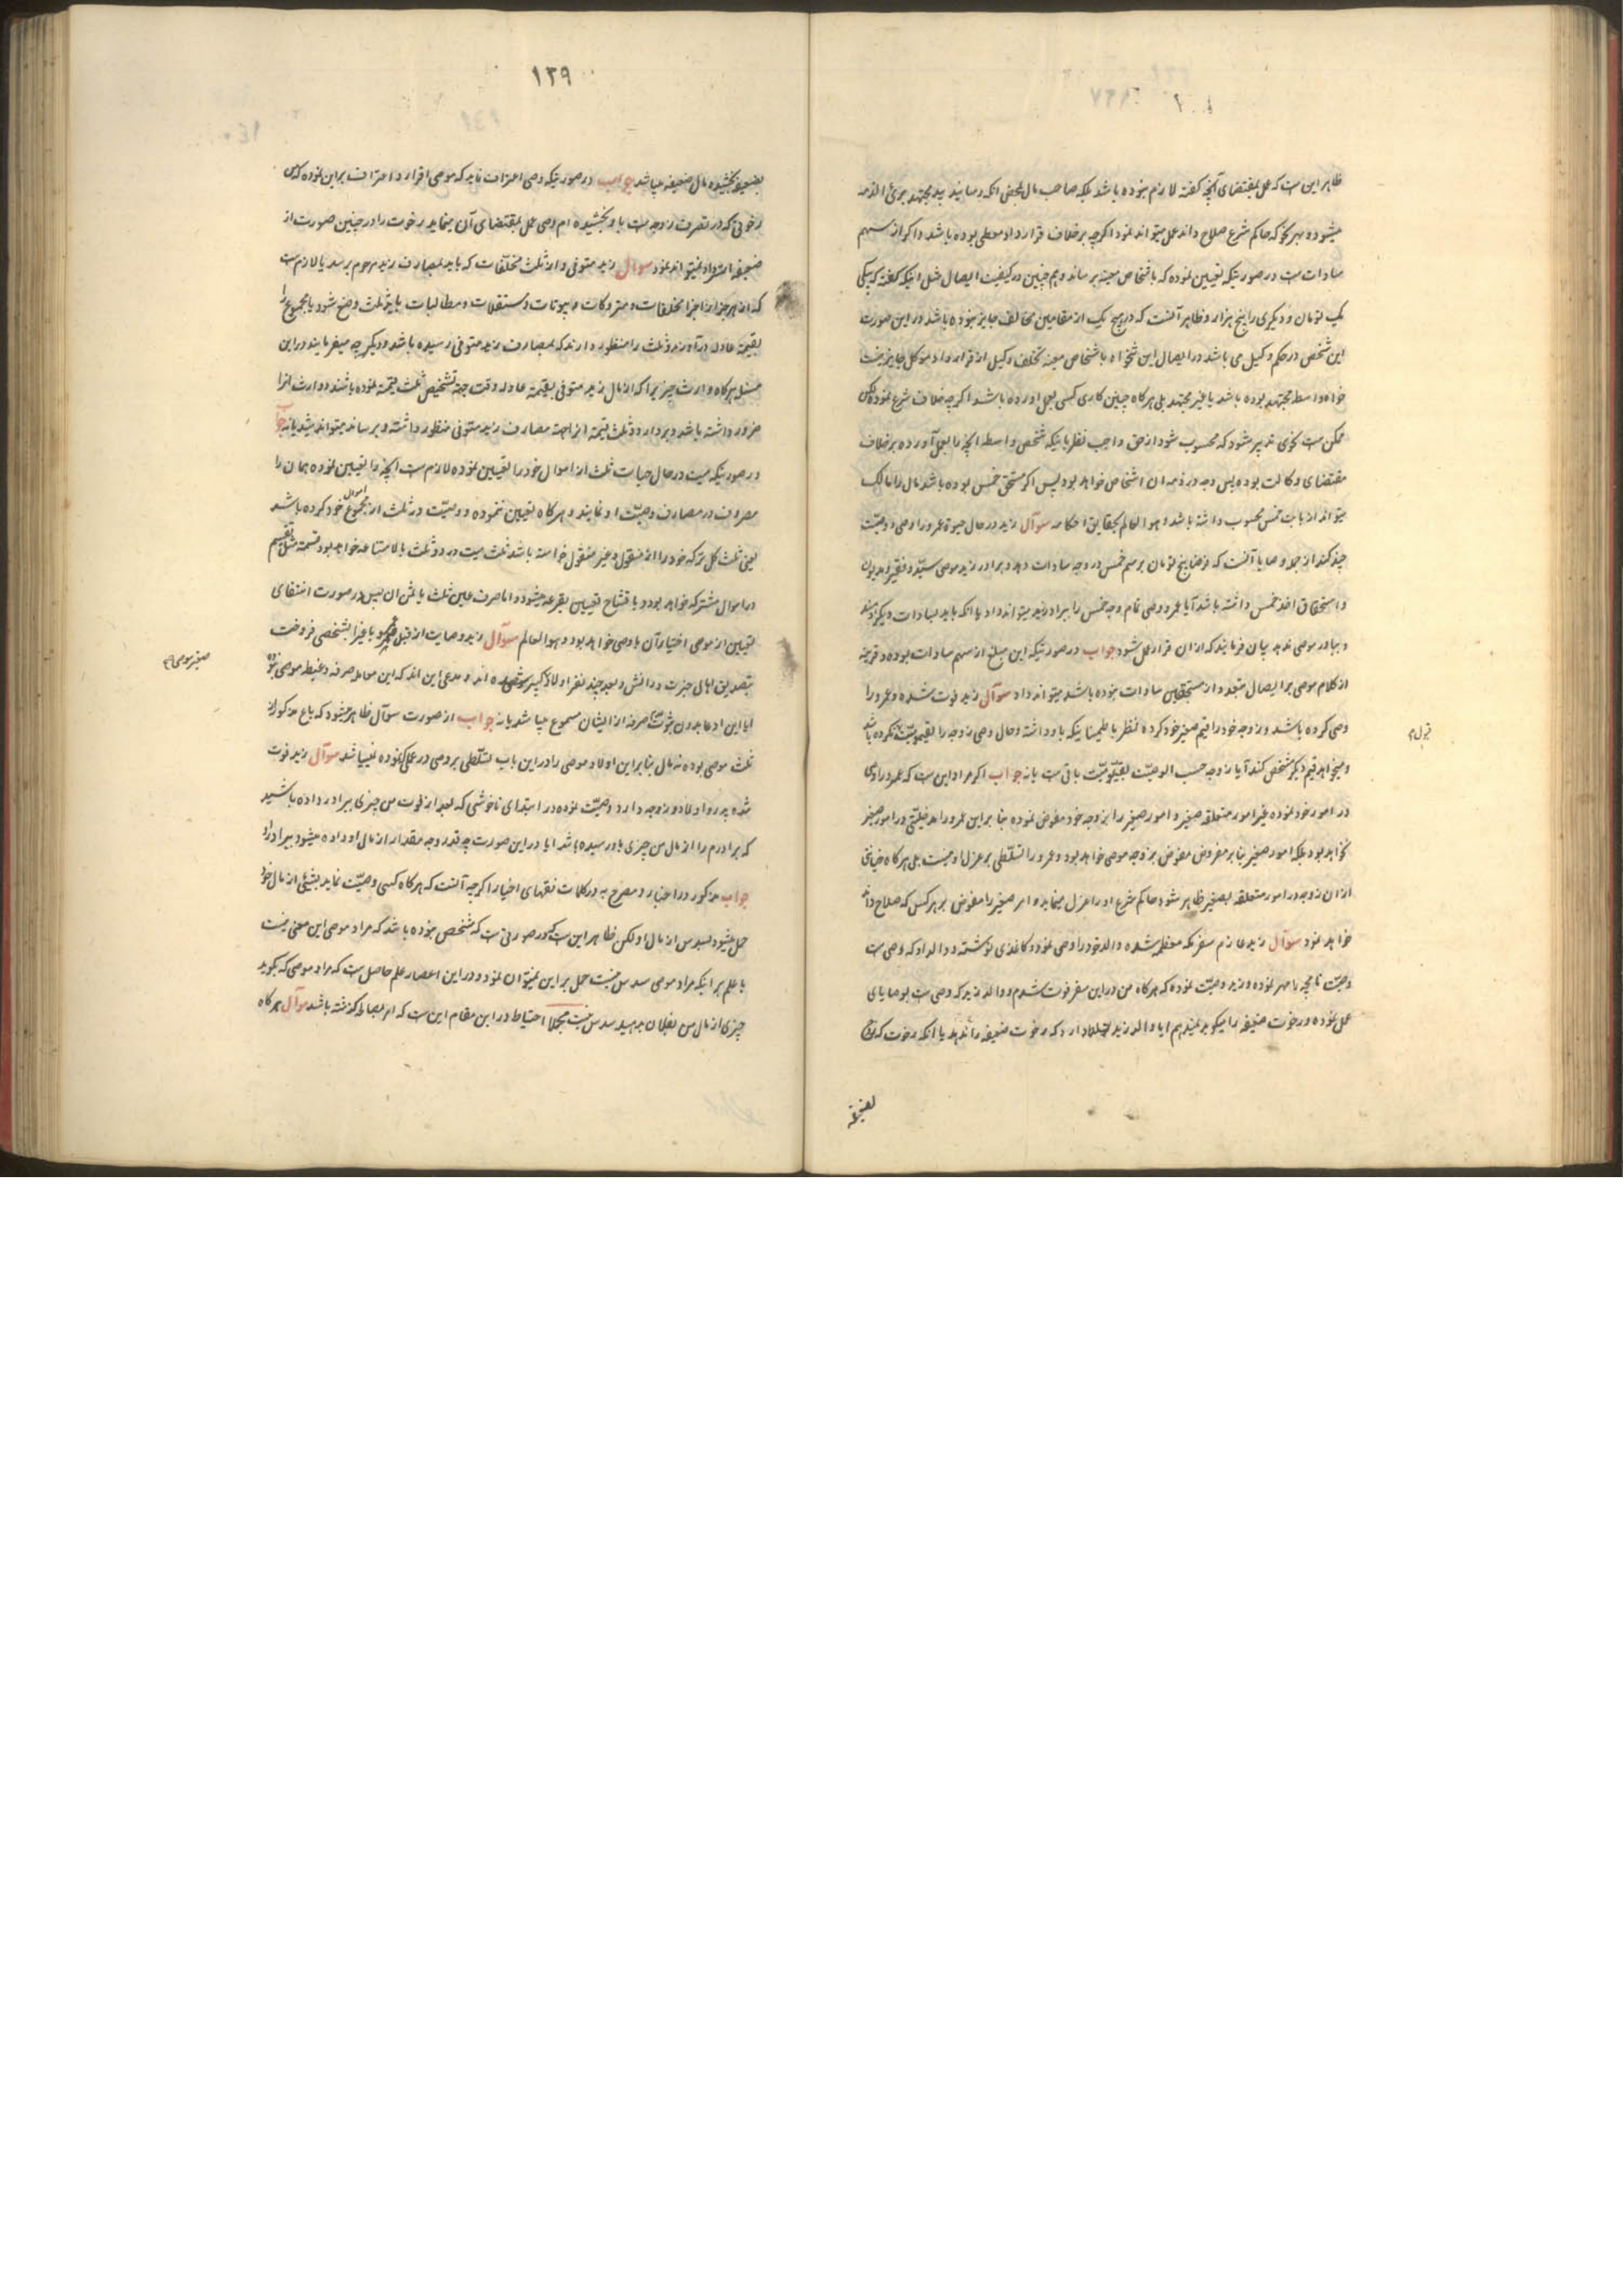 ظاهر این است که عمل بمقتضای آنچه گفته لازم نبوده باشد بلکه صاحب مال بمحض آنکه رسانید بید مجتهد برئ الذمه
میشود و بهر نحو که حاکم شرع صلاح داند عمل میتواند نمود اگرچه برخلاف قرارداد معطی بوده باشد و اگر از سهم
سادات است در صورتیکه تعیین نموده که باشخاص معینه برساند و هم چنین در کیفیت ایصال مثل اینکه گفته که بیکی
یک تومان و دیگری را پنج هزار و ظاهر آنست که در هیچ یک از مقامین مخالف جایز نبوده باشد در این صورت
این شخص در حکم وکیل می باشد در ایصال این تنخواه باشخاص معینه تخلف وکیل از قرارداد موکل جایز نیست
خواه واسطه مجتهد بوده باشد یا غیر مجتهد بلی هرگاه چنین کاری کسی بعمل آورده باشد اگرچه خلاف شرع نموده لکن
ممکن است نحوی تدبیر شود که محسوب شود از حق واجب نظر باینکه شخص واسطه آنچه را بعمل آورده برخلاف
مقتضای وکالت بوده پس وجه در ذمه ان اشخاص خواهد بود پس اگر مستحق خمس بوده باشد مال را مالک
میتواند از بابت خمس محسوب داشته باشد و هو العالم بحقایق احکامه سوآل زید در حال حیوة عمرو را وصی و وصیت
چند کند از جمله وصایا آنست که فرضا پنج تومان برسم خمس در وجه سادات دهد و برادر زید موصی سید و فقیر و مدیون
و استحقاق اخذ خمس داشته باشد آیا عمرو وصی تمام وجه خمس را ببرادر زید میتواند داد یا آنکه باید بسادات دیگر دهند
و ببرادر موصی ندهد بیان فرمایند که از ان قرار عمل شود جواب در صورتیکه این مبلغ از سهم سادات بوده و قرینه
از کلام موصی بر ایصال متعدد از مستحقین سادات نبوده باشد میتواند داد سوآل زید فوت شده و عمرو را
وصی کرده باشد و زوجه خود را قیم صغیر خود کرده نظر باطمینانیکه باو داشته و حال وصی زوجه را بقیمومیت نکرده باشد
و میخواهد قیم دیگر شخص کند آیا زوجه حسب الوصیت بقیمومیت باقی است یا نه جواب اگر مراد این است که عمرو را وصی
در امور خود نموده غیر امور متعلقه صغیر و امور صغیر را بزوجه خود مفوض نموده بنابراین عمرو را مدخلیتی در امور صغیر
نخواهد بود بلکه امور صغیر بنابر مفروض مفوض بزوجه موصی خواهد بود و عمرو را تسلطی بر عزل او نیست بلی هرگاه خیانتی
از ان زوجه در امور متعلقه بصغیر ظاهر شود حاکم شرع او را عزل مینماید و امر صغیر را مفوض بر هر کس که صلاح داند
خواهد نمود سوآل زید عازم سفر مکه معظمه شده والد خود را وصی نموده و کاغذی نوشته و والد او که وصی است
وصیت نامچه را مهر نموده و زید وصیت نموده که هرگاه من در این سفر فوت شدم و والد زید که وصی است بوصایای
عمل نموده و رخوت ضعیفه را میگوید نمیدهم ایا والد زید تسلط دارد که رخوت ضعیفه را ندهد یا آنکه رخوت که
قبول
۱۳۹
بضعیفه بخشیده مال ضعیفه میباشد جواب در صورتیکه وصی اعتراف نماید که موصی اقرار و اعتراف بر این نموده که من
رخوتی که در تصرف زوجه است باو بخشیده ام وصی عمل بمقتضای آن مینماید رخوت را در چنین صورت از
ضعیفه استرداد نمیتواند نمود سوآل زید متوفی و از ثلث مخلفات که باید بمصارف زید مرحوم برسد یا لازم است
که از هر جزء از اجزا مخلفات و متروکات و بیوتات و مستقلات و مطالبات باید ثلث وضع شود یا مجموع را
بقیمة عادله درآورند و ثلث را منظور دارند که بمصارف زید متوفی رسیده باشد و دیگر چه میفرمایند در این
مسئله هرگاه وارث چیزیرا که از مال زید متوفی بقیمة عادله وقت جهة تشخیص ثلث قیمة نموده باشند و وارث انرا
ضرور داشته باشد و بردارد و ثلث قیمة انرا جهة مصارف زید متوفی منظور داشته و برساند میتواند شد یا نه جواب
در صورتیکه میت در حال حیات ثلث از اموال خود را تعیین نموده لازم است آنچه را تعیین نموده همان را
مصروف در مصارف وصیت او نمایند و هرگاه تعیین ننموده و وصیت در ثلث از مجموع اموال خود کرده باشد
یعنی ثلث کل ترکه خود را از منقول و غیر منقول خواسته باشد ثلث میت در دو ثلث بالاشاعه خواهد بود قسمة مثل تقسیم
در اموال مشترکه خواهد بود و با تشاح تعیین بقرعه میشود و اما صرف عین ثلث یا ثمن ان پس در صورت انتفای
تعیین از موصی اختیار آن با وصی خواهد بود و هو العالم سوآل زید وصایت از قبل عمرو باغیرا بشخصی فروخت
بتصدیق اهالی خبرت و دانش و بعد چند نفر اولاد کبیر شده اند و مدعی این اند که این معامله صرفه و غبطه موصی نبوده
صغیر موصی
ایا این ادعا بدون ثبوت صرفه از ایشان مسموع میباشد یا نه جواب از صورت سوآل ظاهر میشود که باغ مذکور از
ثلث موصی بوده نه مال بنابراین اولاد موصی را در این باب تسلطی بر وصی در عملی نموده نمیباشد سوآل زید فوت
شده پدر و اولاد و زوجه دارد وصیت نموده در ابتدای ناخوشی که بعد از فوت من چیزی ببرادر داده باشید
که برادرم را از مال من چیزی باو رسیده باشد ایا در این صورت چه قدر وجه مقدار از مال او داده میشود ببرادر او
جواب مذکور در اخبار و مصرح به در کلمات فقهای اخیار اگرچه آنست که هرگاه کسی وصیت نماید بشیئی از مال خود
حمل میشود بسدس از مال او لکن ظاهر این است که در صورتی است که مشخص نبوده باشد که مراد موصی این معنی نیست
با علم بر اینکه مراد موصی سدس نیست حمل بر این نمیتوان نمود و در این اعصار علم حاصل است که مراد موصی که بگوید
چیزی از مال من بفلان بدهید سدس نیست مجملا احتیاط در این مقام این است که امر بمصالحه گذشته باشد سوآل هرگاه